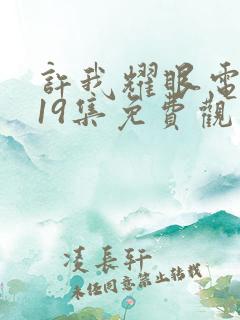 許我耀眼電
19集免費觀
凌長軒
未经同意禁止转载